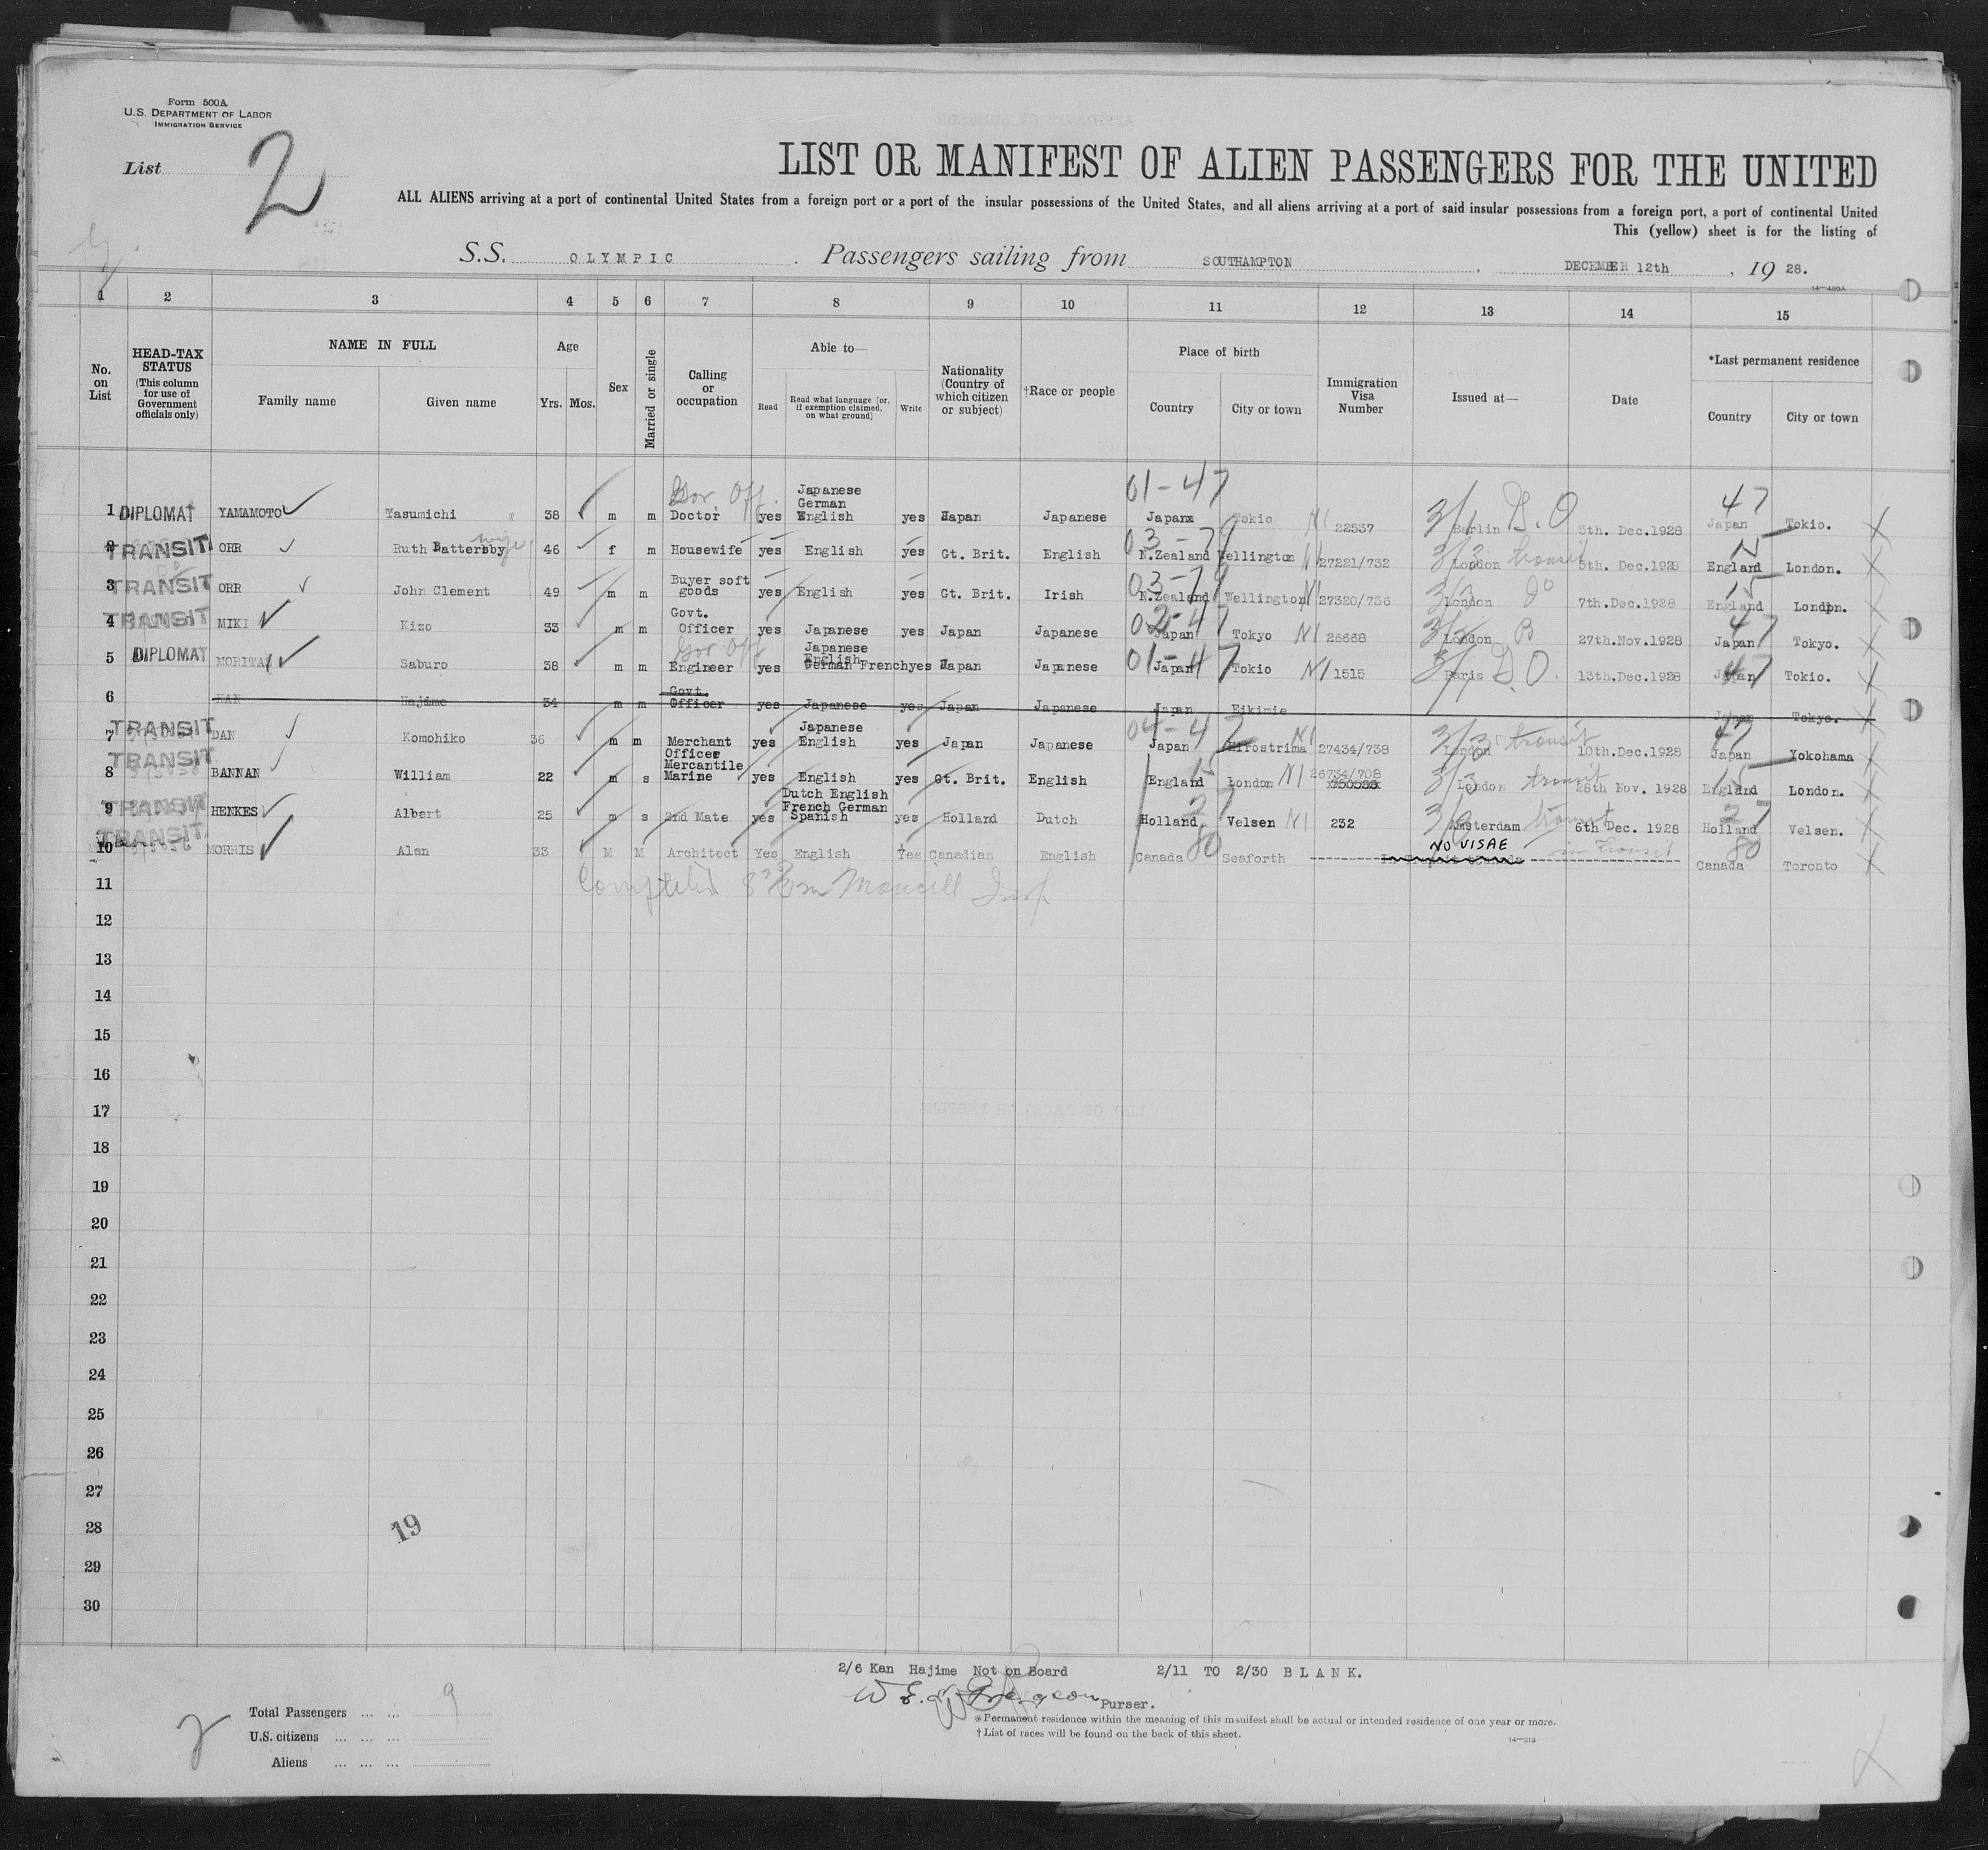 Form 500A
U.S. DEPARTMENT OF LABOR
IMMIGRATION SERVICE
List 2
LIST OR MANIFEST OF ALIEN PASSENGERS FOR THE UNITED
ALL ALIENS arriving at a port of continental United States from a foreign port or a port of the insular possessions of the United States, and all aliens arriving at a port of said insular possessions from a foreign port, a port of continental United
This (yellow) sheet is for the listing of
S.S. OLYMPIC . Passengers sailing from SOUTHAMPTON , DECEMBER 12th , 19 28.
14-480A
1 2 3 4 5 6 7 8 9 10 11 12 13 14 15
No. on List
HEAD-TAX STATUS (This column for use of Government officials only)
NAME IN FULL
Family name Given name
Age
Yrs. Mos.
Sex
Married or single
Calling or occupation
Able to—
Read Read what language [or, if exemption claimed, on what ground] Write
Nationality (Country of which citizen or subject)
†Race or people
Place of birth
Country City or town
Immigration Visa Number
Issued at—
Date
*Last permanent residence
Country City or town
1 DIPLOMAT YAMAMOTO Yasumichi 38 m m Gov. Off. Doctor yes Japanese German English yes Japan Japanese 01-47 Japan Tokio N1 22537 3/1 Berlin G.O 5th. Dec.1928 47 Japan Tokio.
2 TRANSIT ORR Ruth Battersby wife 46 f m Housewife yes English yes Gt. Brit. English 03-79 N.Zealand Wellington N1 27221/732 3/3 London transit 5th. Dec.1928 15 England London.
3 TRANSIT ORR John Clement 49 m m Buyer soft goods yes English yes Gt. Brit. Irish 03-79 N.Zealand Wellington N1 27320/736 3/3 London do 7th.Dec.1928 15 England London.
4 TRANSIT MIKI Kizo 33 m m Govt. Officer yes Japanese yes Japan Japanese 02-47 Japan Tokyo N1 28668 London B 27th.Nov.1928 47 Japan Tokyo.
5 DIPLOMAT MORITA Saburo 38 m m Gov Off Engineer yes Japanese English German French yes Japan Japanese 01-47 Japan Tokio N1 1515 3/1 Paris G.O. 13th.Dec.1928 47 Japan Tokio.
6 KAN Hajime 34 m m Govt. Officer yes Japanese yes Japan Japanese Japan Eikimie Japan Tokyo.
7 TRANSIT DAN Komohiko 36 m m Merchant yes Japanese English yes Japan Japanese 04-47 Japan Hirostrima N1 27434/738 3/3 London transit 10th.Dec.1928 47 Japan Yokohama
8 TRANSIT BANNAN William 22 m s Officer Mercantile Marine yes English yes Gt. Brit. English England 15 London N1 26734/708 3/3 London transit 28th Nov. 1928 15 England London.
9 TRANSIT HENKES Albert 25 m s 2nd Mate yes Dutch English French German Spanish yes Holland Dutch Holland 27 Velsen N1 232 3/3 Amsterdam transit 6th Dec. 1928 27 Holland Velsen.
10 TRANSIT MORRIS Alan 33 M M Architect Yes English Yes Canadian English Canada 80 Seaforth NO VISAE in transit 80 Canada Toronto
11
12
13
14
15
16
17
18
19
20
21
22
23
24
25
26
27
28
29
30
19
2/6 Kan Hajime Not on Board 2/11 TO 2/30 BLANK.
Purser.
Total Passengers ... ... 9
U.S. citizens ... ... ...
Aliens ... ... ...
* Permanent residence within the meaning of this manifest shall be actual or intended residence of one year or more.
† List of races will be found on the back of this sheet.
14-213